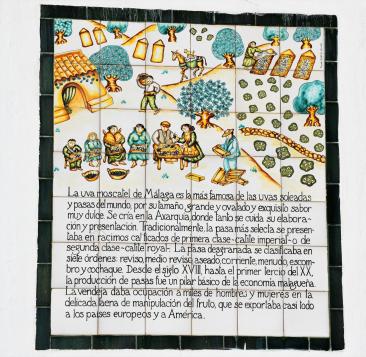 La uva moscatel de Málaga es la más famosa de las uvas soleadas
y pasas del mundo, por su tamaño, grande y ovalado y exquisito sabor
muy dulce. Se cría en la Axarquía donde tanto se cuida su elabora-
ción y presentación. Tradicionalmente, la pasa más selecta se presen-
taba en racimos calificados de primera clase-calité imperial-o de
segunda clase-calité royal-. La pasa desgranada se clasificaba en
siete órdenes: reviso, medio reviso, aseado, corriente, menudo, escom-
bro y cochaque. Desde el siglo XVIII, hasta el primer tercio del XX,
la producción de pasas fue un pilar básico de la economía malagueña.
La vendeja daba ocupación a miles de hombres y mujeres en la
delicada faena de manipulación del fruto, que se exportaba casi todo
a los países europeos y a América.